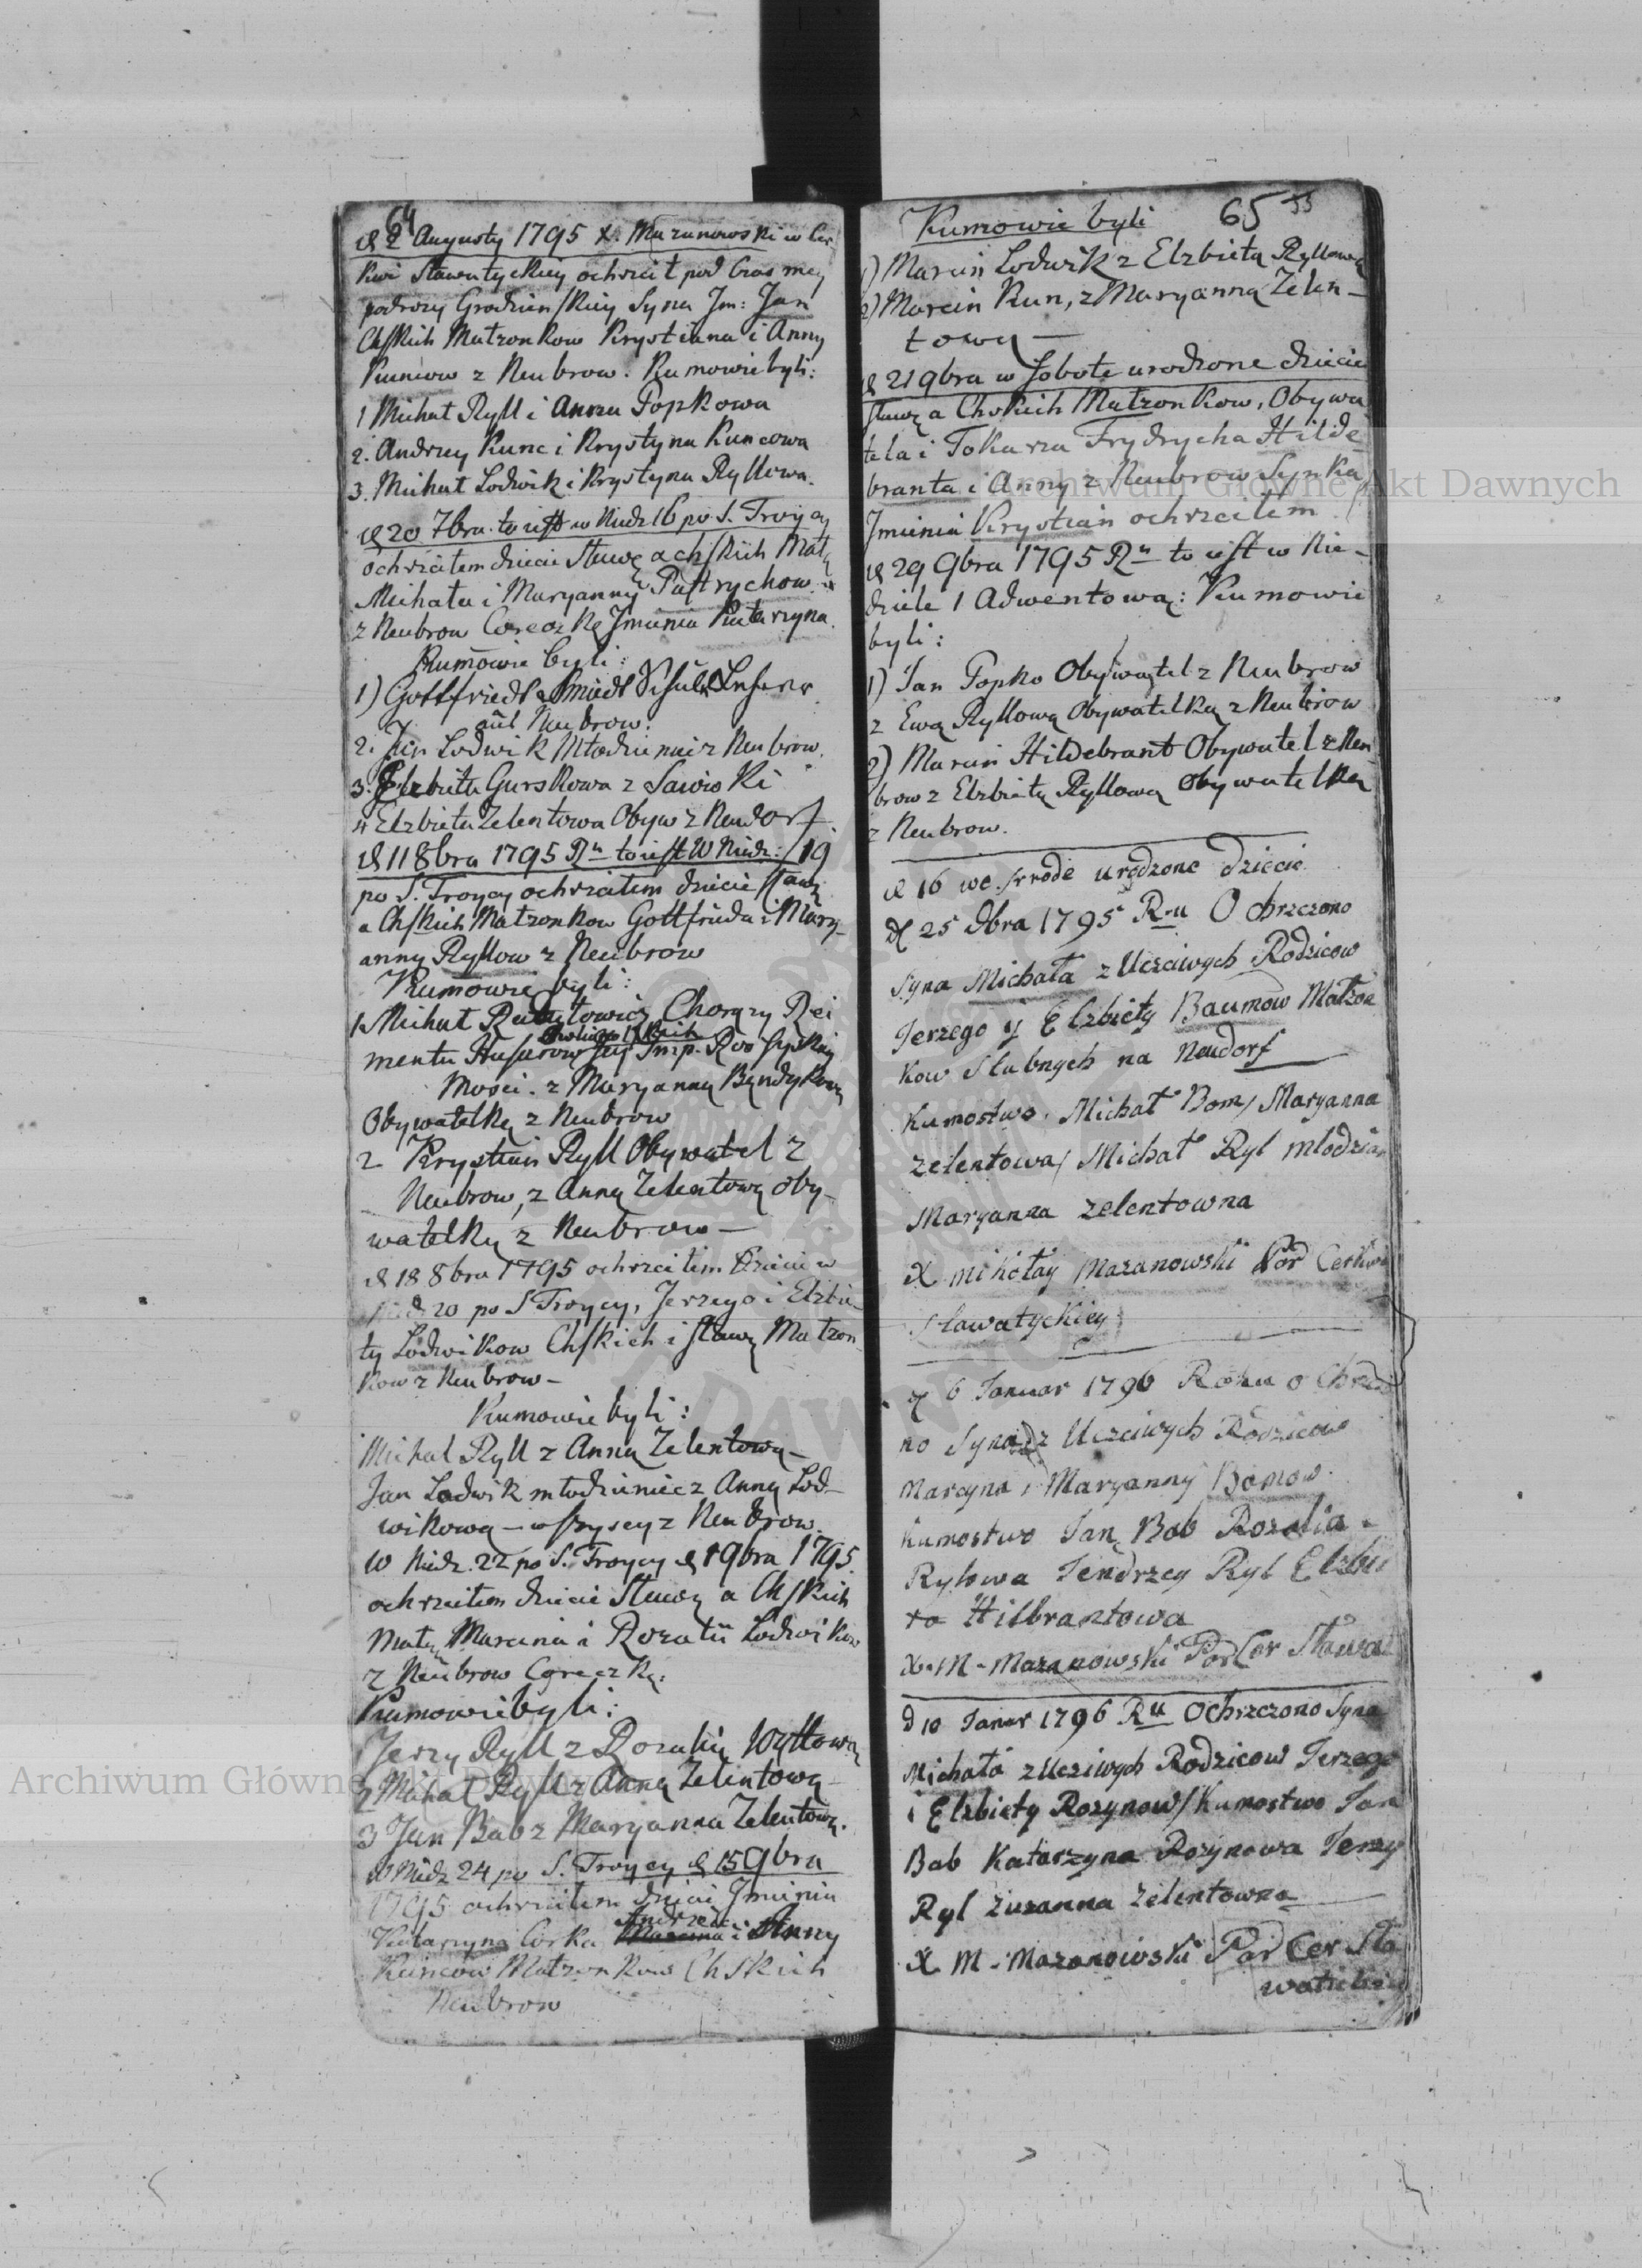 64
d 2 Augusty 1795 X. Mazanowski w Cer-
kwi Sławatyckiey ochrcił pod czas mey
podrozy Grodzieńskiey Syna Jm: Jan
Chskich Małzonkow Krystiana i Anny
Kuncow z Neubrow. Kumowie byli:
1 Michał Ryll i Anna Popkowa
2. Andrzey Kunc i Krystyna Kuncowa
3. Michał Lodwik i Krystyna Ryllowa.
d 20 7bra. to iest w Niedz 16 po S. Troycy
ochrzciłem dziecie Sławę a chskich Małż
Michała i Maryanny Pastrychow
z Neubrow Coreczkę Jmienia Katarzyna.
Kumowie byli:
1) Gottfriedt Schmiedt
aus Neubrow.
2. Jan Lodwik Młodzieniec z Neubrow.
3. Elzbieta Gurskowa z Sawioki
4 Elzbieta Zelentowa Obyw z Neudorf.
d 11 8bra 1795 Ru to iest W Niedz: 19
po S. Troycy ochrzciłem dziecie sławę
a Chskich Małzonkow Gottfrieda i Mary-
anny Ryllow z Neubrow
Kumowie byli:
1. Michał Chorązy Rei
mentu Husarow Jey Imp. Rossyskiey
Mosci. z Maryanną Byndykową
Obywatelką z Neubrow
2 Krystian Ryll Obywatel z
Neubrow, z Anną Zelentową oby-
watelką z Neubrow —
d 18 8bra 1795 ochrzciłem dziecie w
Niedz 20 po S Troycy, Jerzego i Elzbie-
ty Lodwikow Chskich i sławę Małzon
kow z Neubrow —
Kumowie byli:
Michał Ryll z Anną Zelentową —
Jan Lodwik młodzieniec z Anną Lod-
wikową — wszyscy z Neubrow.
W Niedz. 22 po S. Troycy d 1 9bra 1795.
ochrzciłem dziecie Sławę a Chskich
Małż Marcina i Rozalii Lodwikow
z Neubrow Coreczkę:
Kumowie byli:
1 Jerzy Ryll z Rozalią Wyllową
2 Michał Ryll z Anną Zelentową —
3 Jan Bab z Maryanną Zelentową.
W Niedz 24 po S. Troycy d 15 9bra
1795 ochrzciłem dziecie Jmienia
Andrzeia
Katarzyna Corka Marcina i Anny
Kuncow Małzonkow Chskich
Neubrow
65 33
Kumowie byli
1) Marcin Lodwik z Elzbietą Ryllową
2) Marcin Kun, z Maryanną Zelen-
tową —
d 21 9bra w Sobotę urodzone dziecie
sławę a Chskich Małzonkow, Obywa-
tela i Tokarza Frydrycha Hilde
branta i Anny z Neubrow Synka
Jmienia Krystian ochrzciłem
d 29 9bra 1795 Ru to iest w Nie-
dziele 1 Adwentową: Kumowie
byli:
1) Jan Popko Obywatel z Neubrow
z Ewą Ryllową Obywatelką z Neubrow
2) Marcin Hildebrant Obywatel z Neu
brow z Elzbietą Ryllową Obywatelką
z Neubrow.
d 16 we srrode urodzone dziecie
d 25 Xbra 1795 Ru Ochrzczono
syna Michała z Uczciwych Rodzicow
Jerzego y Elzbiety Baumow Małzon
kow slubnych na Neudorf
Kumostwo. Michał Bom / Maryanna
Zelentowa / Michał Ryl młodzian
Maryanna Zelentowna
X Mikołay Mazanowski Par Cerkwi
Sławatyckiey
d 6 Januar 1796 Roku Ochrzczo
no Syna z Uczciwych Rodzicow
Marcyna i Maryanny Bomow.
Kumostwo Jan Bab Rozalia
Rylowa Jendrzey Ryl Elzbie
ta Hilbrantowa
X. M. Mazanowski Par Cer Sławat
d 10 Januar 1796 Ru Ochrzczono Syna
Michała z Uczciwych Rodzicow Jerzego
i Elzbiety Rozynow / Kumostwo Jan
Bab Katarzyna Rozynowa Jerzy
Ryl Zuzanna Zelentowna
X M. Mazanowski Par Cer Sła
watickiey
Archiwum Główne Akt Dawnych
Archiwum Główne Akt Dawnych